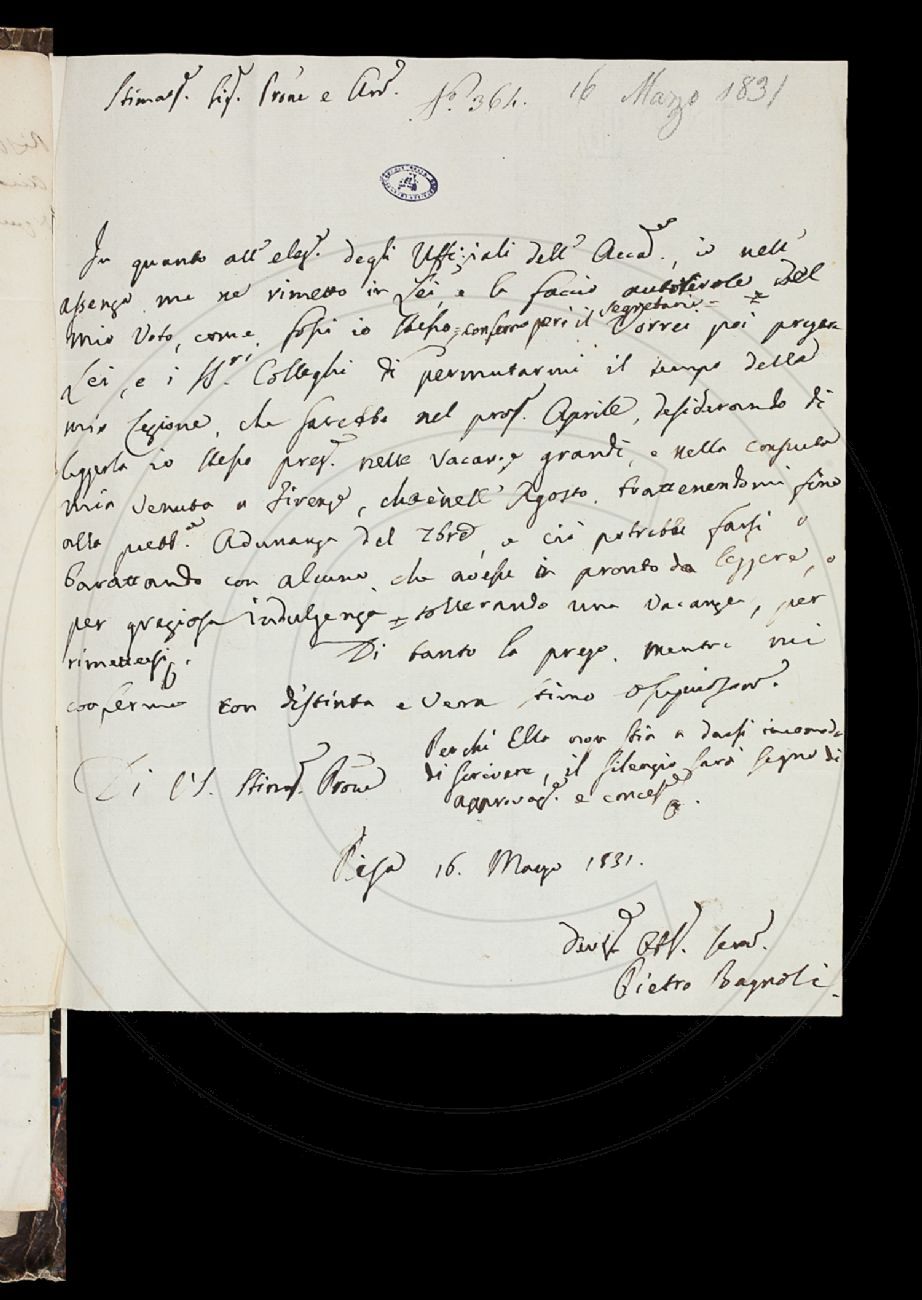 Stimatis.º Sig.r Prone e Am.º
Nº 364. 16 Marzo 1831
In quanto all' elez.e degli Uffiziali dell' Accad.a, io nell'
assenza me ne rimetto in Lei, e la faccio autorevole del
mio Voto, come fossi io stesso, conferma per il Segretario. Vorrei poi pregar
Lei, e i SS.ri Colleghi di permutarmi il tempo della
mia Lezione, che sarebbe nel pros.º Aprile, desiderando di
leggerla io stesso pres.e nelle vacanze grandi, e nella consueta
mia venuta a Firenze, che è nell' Agosto, trattenendomi fino
alla pubb.a Adunanza del 7bre, e ciò potrebbe farsi o
barattando con alcuno, che avesse in pronto da leggere, o
per graziosa indulgenza tollerando una vacanza, per
rimettersi.
Di tanto la prego, mentre mi
confermo con distinta e vera stima ossequiosam.e
Perchè Ella non stia a darsi incomodo
di scrivere, il silenzio sarà segno di
approvaz.e e concess.e
Di V.S. Stimat.a Prone
Pisa 16. Marzo 1831.
Devot.º Obb.º Serv.e
Pietro Bagnoli.